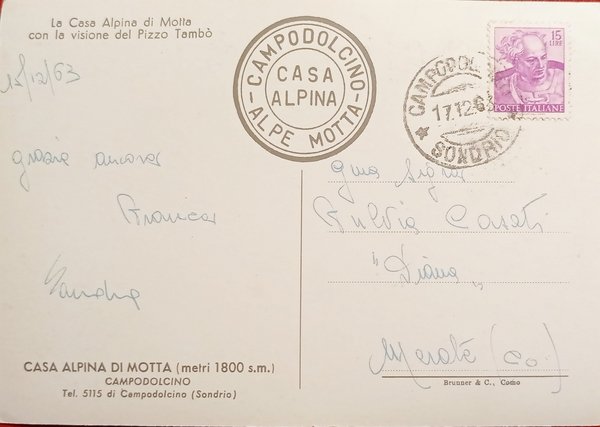 La Casa Alpina di Motta
con la visione del Pizzo Tambò
15/12/63
grazie ancora
Franca
Sandra
CASA ALPINA DI MOTTA (metri 1800 s.m.)
CAMPODOLCINO
Tel. 5115 di Campodolcino (Sondrio)
CAMPODOLCINO
CASA
ALPINA
ALPE MOTTA
17.12.63
SONDRIO
15
LIRE
POSTE ITALIANE
Fulvia Casati
"Diana"
Merate (Co)
Brunner & C., Como